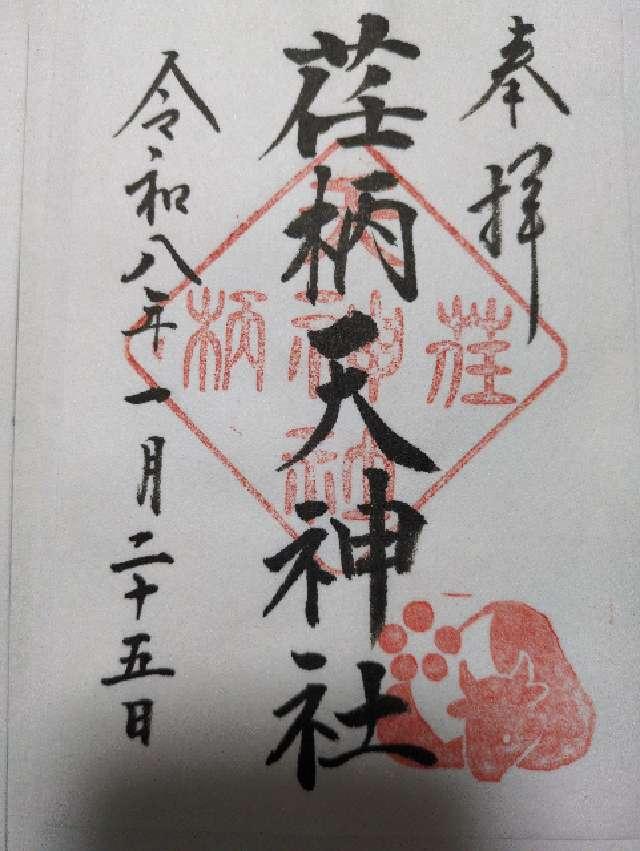 奉拝
荏柄天神社
令和八年一月二十五日
荏
天
神
社
柄